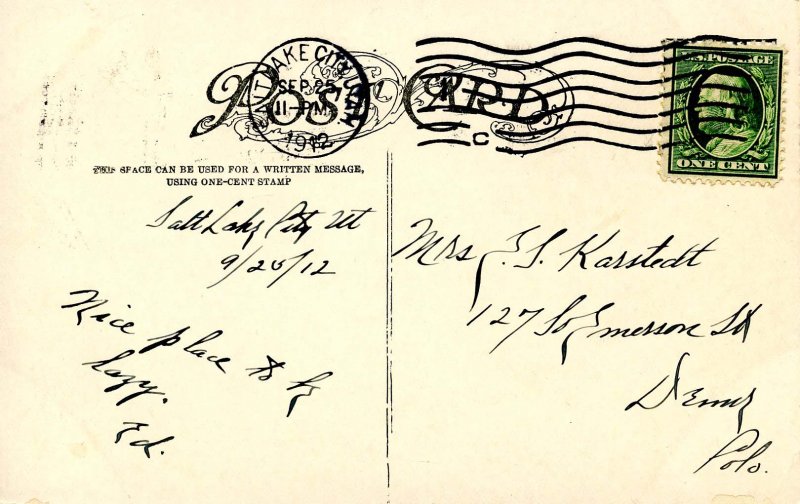 POST CARD
SALT LAKE CITY, UTAH
SEP 25
11-PM
1912
C
U.S. POSTAGE
ONE CENT
THIS SPACE CAN BE USED FOR A WRITTEN MESSAGE,
USING ONE-CENT STAMP
Salt Lake City Ut
9/25/12
Nice place to be
lazy.
Ed.
Mrs E. S. Karstedt
127 So Emerson St
Denver
Colo.